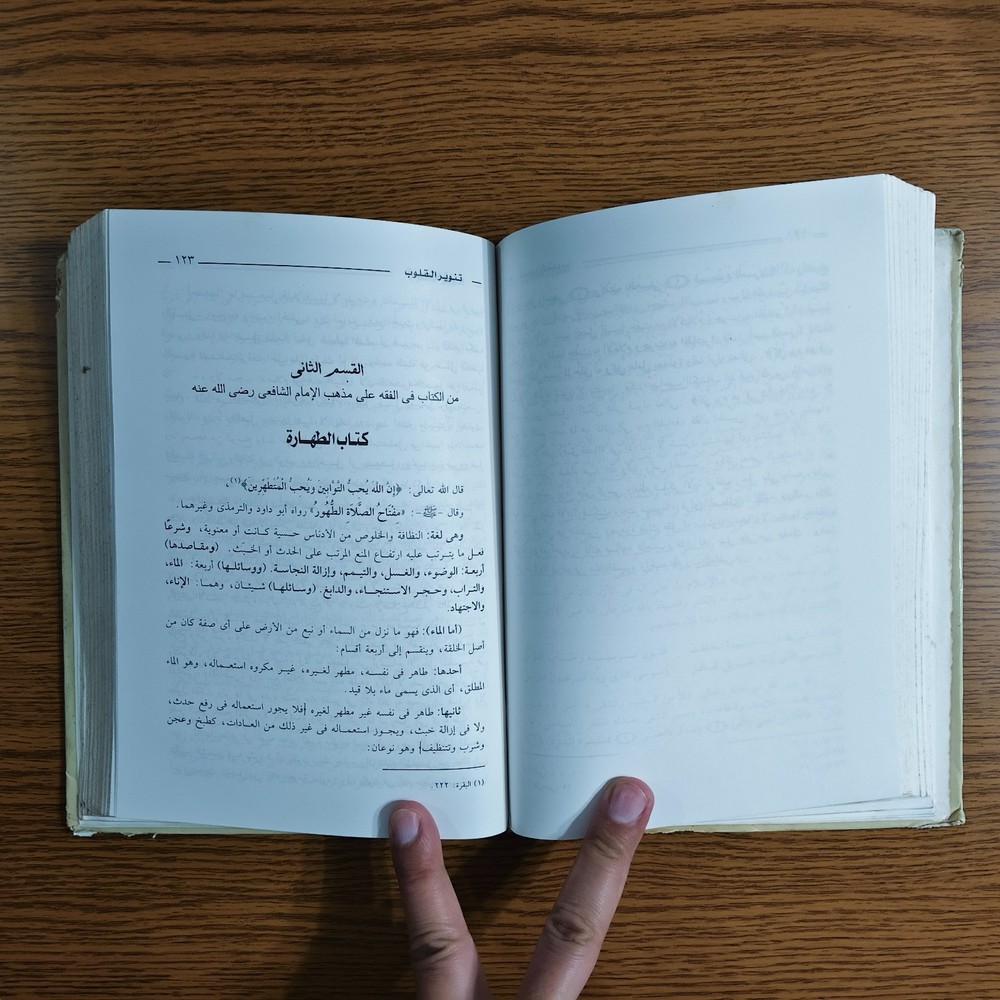 تنوير القلوب ١٢٣
القسم الثانى
من الكتاب فى الفقه على مذهب الإمام الشافعى رضى الله عنه
كتاب الطهارة
قال الله تعالى: ﴿إِنَّ اللهَ يُحِبُّ التَّوَّابِينَ وَيُحِبُّ الْمُتَطَهِّرِينَ﴾(١)،
وقال -ﷺ-: «مِفْتَاحُ الصَّلَاةِ الطُّهُورُ» رواه أبو داود والترمذى وغيرهما.
وهى لغة: النظافة والخلوص من الأدناس حسية كانت أو معنوية، وشرعًا
فعل ما يترتب عليه ارتفاع المنع المرتب على الحدث أو الخبَث. (ومقاصدها)
أربعة: الوضوء، والغسل، والتيمم، وإزالة النجاسة. (ووسائلها) أربعة: الماء،
والتراب، وحجر الاستنجاء، والدابغ. (وسائلها) شيئان، وهما: الإناء،
والاجتهاد.
(أما الماء): فهو ما نزل من السماء أو نبع من الأرض على أى صفة كان من
أصل الخلقة، وينقسم إلى أربعة أقسام:
أحدها: طاهر فى نفسه، مطهر لغيره، غير مكروه استعماله، وهو الماء
المطلق، أى الذى يسمى ماء بلا قيد.
ثانيها: طاهر فى نفسه غير مطهر لغيره [فلا يجوز استعماله فى رفع حدث،
ولا فى إزالة خبث، ويجوز استعماله فى غير ذلك من العادات، كطبخ وعجن
وشرب وتنظيف] وهو نوعان:
(١) البقرة: ٢٢٢.